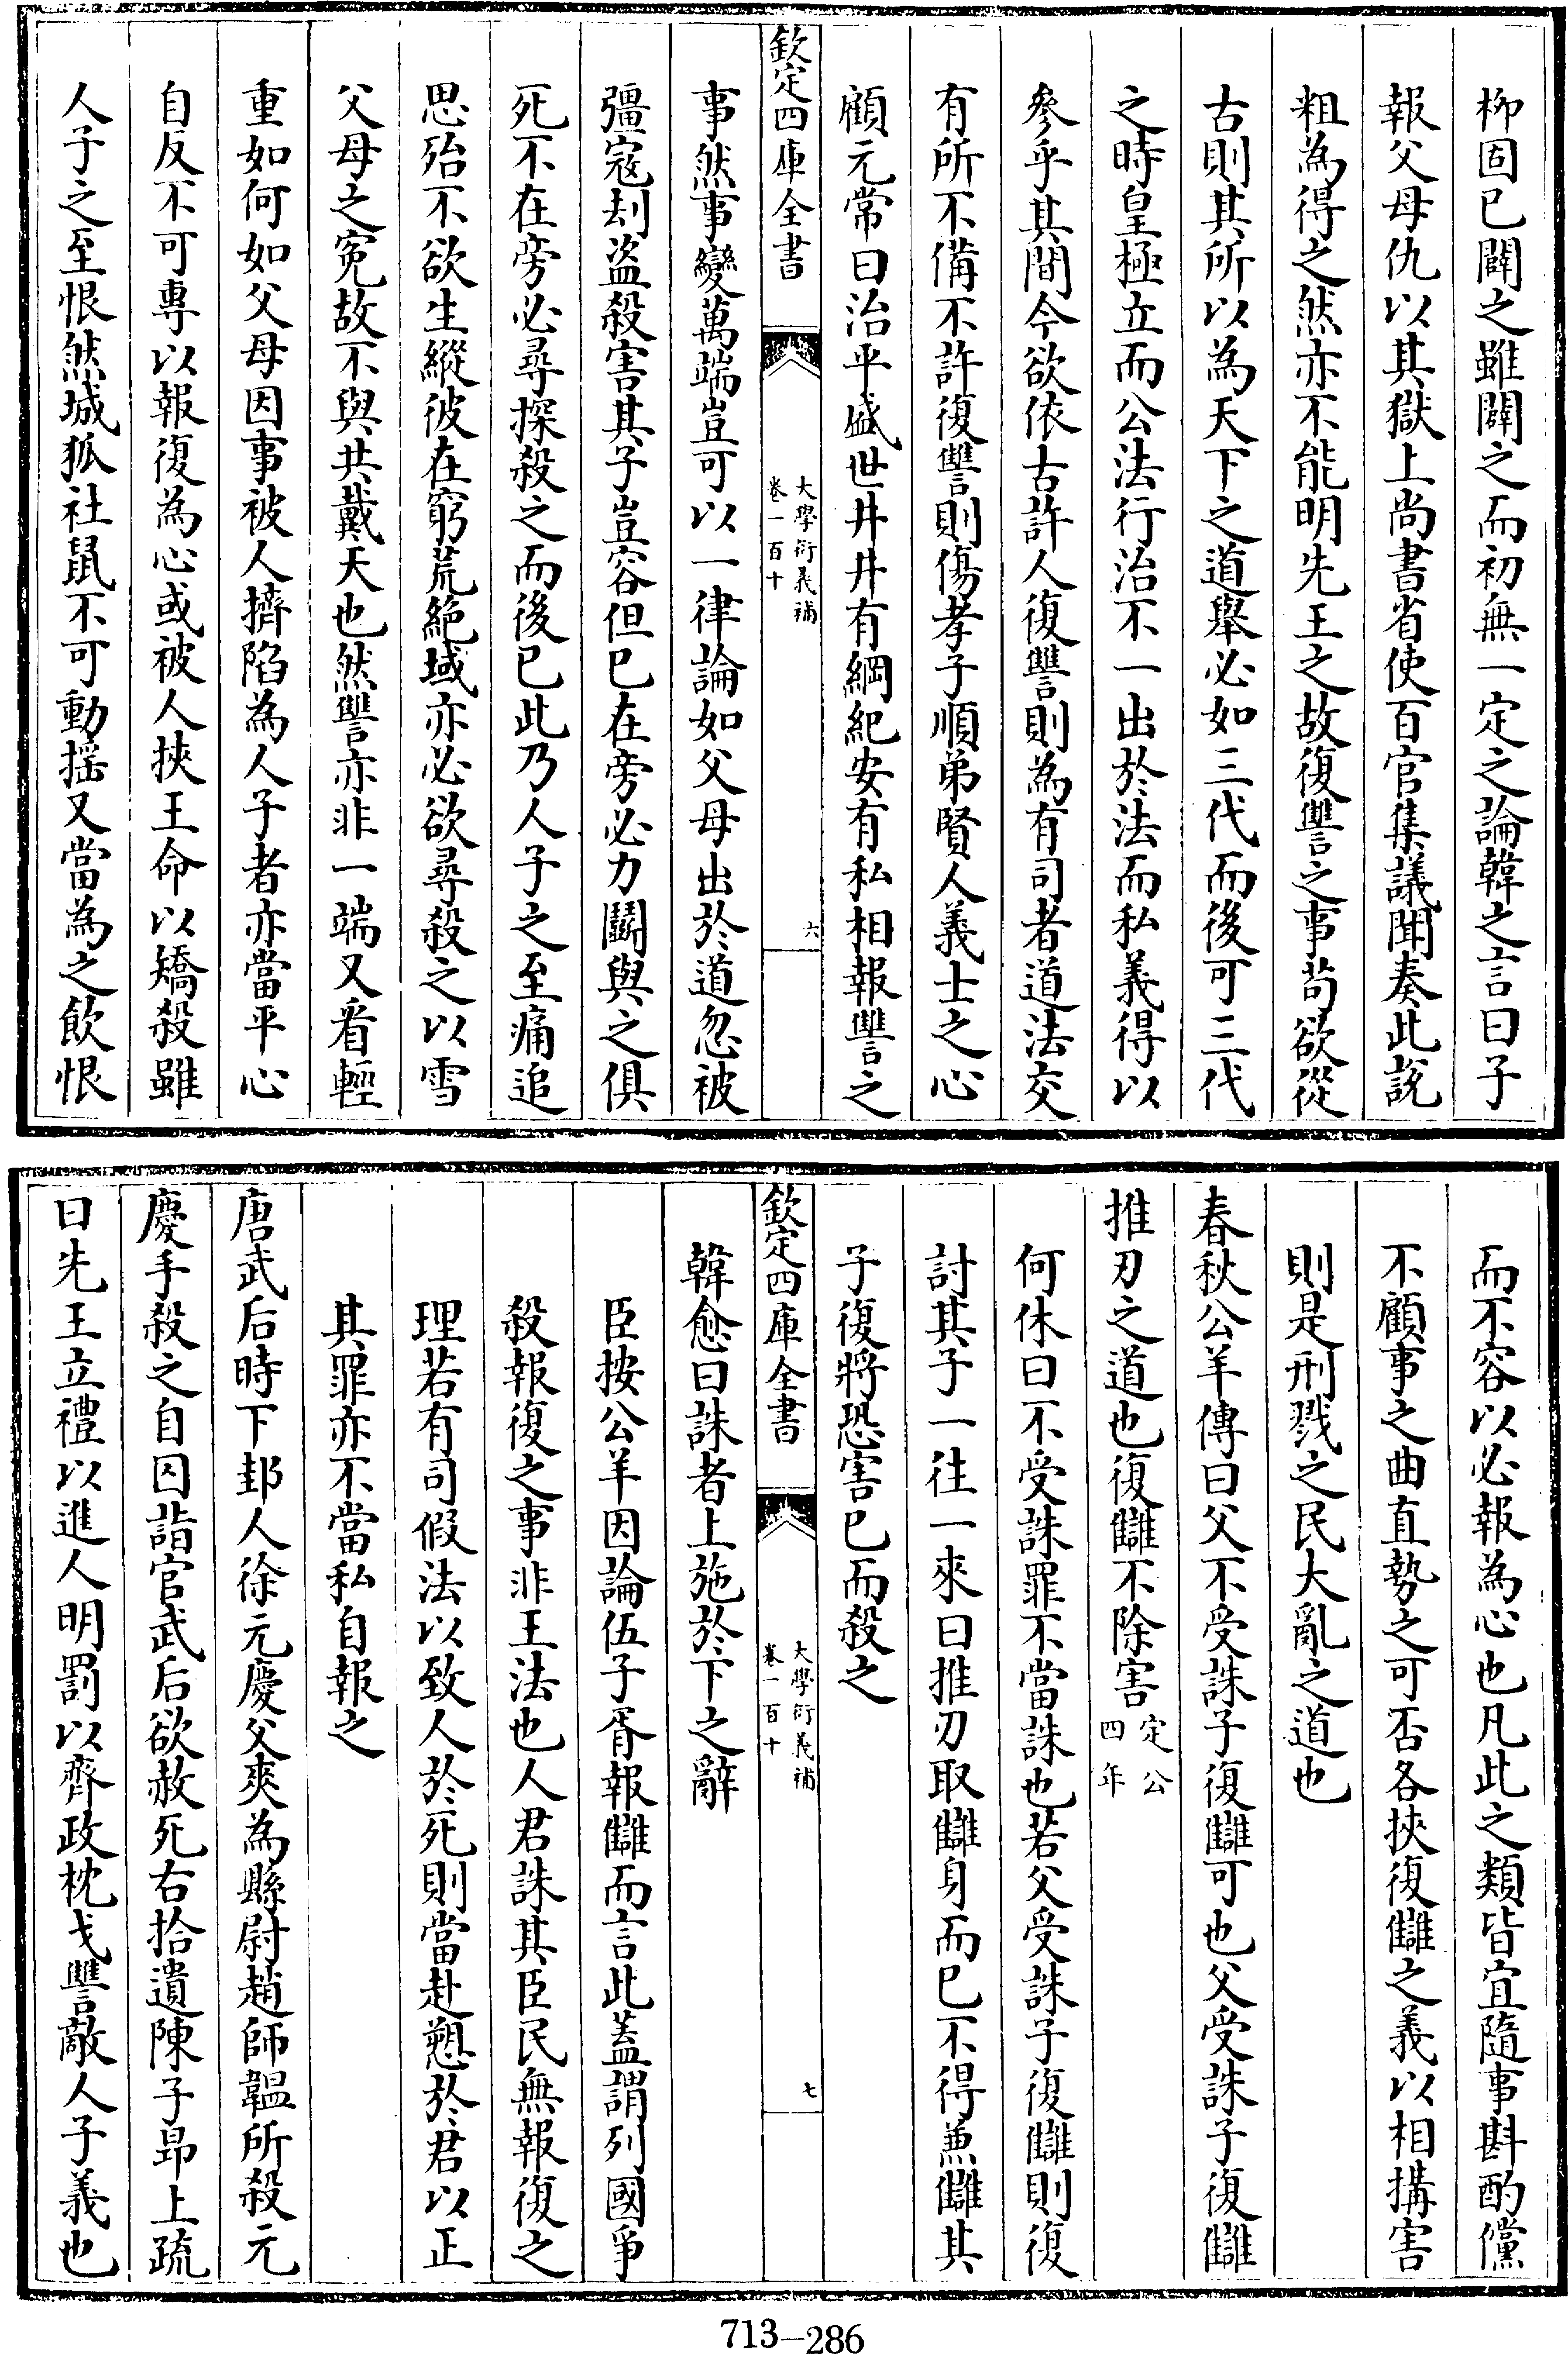 柳固已闢之雖闢之而初無一定之論韓之言曰子
報父母仇以其獄上尚書省使百官集議聞奏此說
粗為得之然亦不能明先王之故復讐之事茍欲從
古則其所以為天下之道舉必如三代而後可三代
之時皇極立而公法行治不一出於法而私義得以
參乎其間今欲依古許人復讐則為有司者道法交
有所不備不許復讐則傷孝子順弟賢人義士之心
顧元常曰治平盛世井井有綱紀安有私相報讐之
欽定四庫全書
大學衍義補
卷一百十
六
事然事變萬端豈可以一律論如父母出於道忽被
彊寇刦盜殺害其子豈容但已在旁必力鬭與之俱
死不在旁必尋探殺之而後已此乃人子之至痛追
思殆不欲生縱彼在窮荒絶域亦必欲尋殺之以雪
父母之寃故不與共戴天也然讐亦非一端又看輕
重如何如父母因事被人擠陷為人子者亦當平心
自反不可專以報復為心或被人挾王命以矯殺雖
人子之至恨然城狐社鼠不可動揺又當為之飲恨
而不容以必報為心也凡此之類皆宜隨事斟酌儻
不顧事之曲直勢之可否各挾復讎之義以相搆害
則是刑戮之民大亂之道也
春秋公羊傳曰父不受誅子復讎可也父受誅子復讎
推刃之道也復讎不除害定公
四年
何休曰不受誅罪不當誅也若父受誅子復讎則復
討其子一往一來曰推刃取讎身而已不得兼讎其
子復將恐害已而殺之
欽定四庫全書
大學衍義補
卷一百十
七
韓愈曰誅者上施於下之辭
臣按公羊因論伍子胥報讎而言此蓋謂列國爭
殺報復之事非王法也人君誅其臣民無報復之
理若有司假法以致人於死則當赴愬於君以正
其罪亦不當私自報之
唐武后時下邽人徐元慶父爽為縣尉趙師韞所殺元
慶手殺之自囚詣官武后欲赦死右拾遺陳子昂上疏
曰先王立禮以進人明罰以齊政枕戈讐敵人子義也
713-286